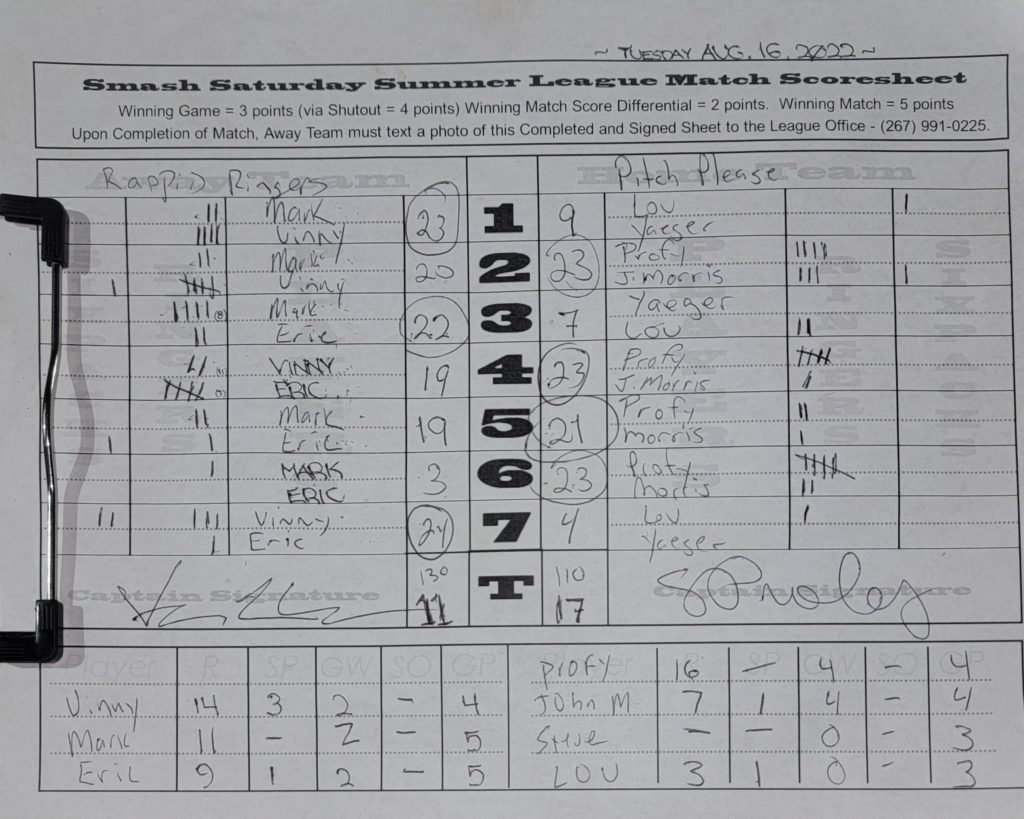 ~ TUESDAY AUG. 16, 2022 ~
Smash Saturday Summer League Match Scoresheet
Winning Game = 3 points (via Shutout = 4 points) Winning Match Score Differential = 2 points. Winning Match = 5 points
Upon Completion of Match, Away Team must text a photo of this Completed and Signed Sheet to the League Office - (267) 991-0225.
Rappid Ringers Pitch Please
Mark 23 1 9 Lou
Vinny Yaeger
Mark 20 2 23 Profy
Vinny J. Morris
Mark 22 3 7 Yaeger
Eric Lou
VINNY 19 4 23 Profy
ERIC J. Morris
Mark 19 5 21 Profy
Eric morris
MARK 3 6 23 Profy
ERIC Morris
Vinny 24 7 4 Lou
Eric Yaeger
130 T 110
Captain Signature 11 17 Captain Signature
Player R SP GW SO GP PROFY 16 - 4 - 4
Vinny 14 3 2 - 4 JOHN M. 7 1 4 - 4
Mark 11 - 2 - 5 Steve - - 0 - 3
Eric 9 1 2 - 5 LOU 3 1 0 - 3